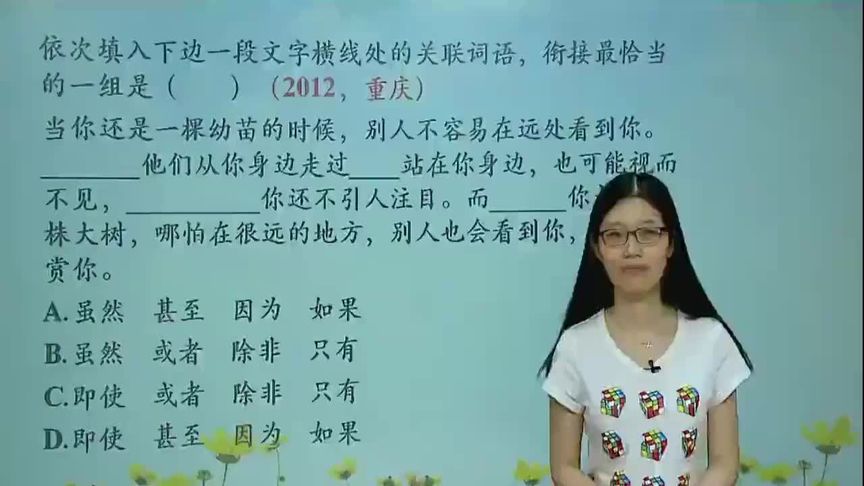 依次填入下边一段文字横线处的关联词语，衔接最恰当
的一组是（　　）（2012，重庆）
当你还是一棵幼苗的时候，别人不容易在远处看到你。
________他们从你身边走过____站在你身边，也可能视而
不见，__________你还不引人注目。而______你
株大树，哪怕在很远的地方，别人也会看到你，
赏你。
A.虽然　甚至　因为　如果
B.虽然　或者　除非　只有
C.即使　或者　除非　只有
D.即使　甚至　因为　如果